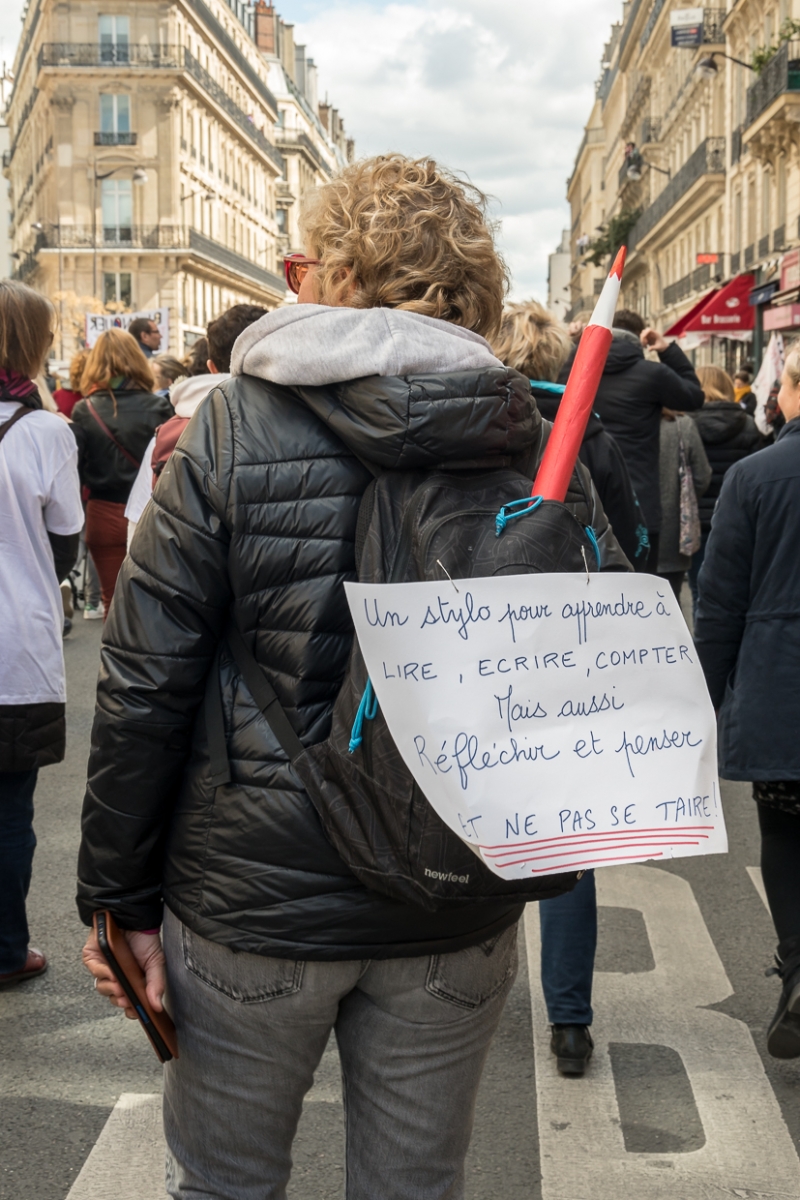 Bar Brasserie
Un stylo pour apprendre à
LIRE , ECRIRE , COMPTER
Mais aussi
Réfléchir et penser
ET NE PAS SE TAIRE!
newfeel